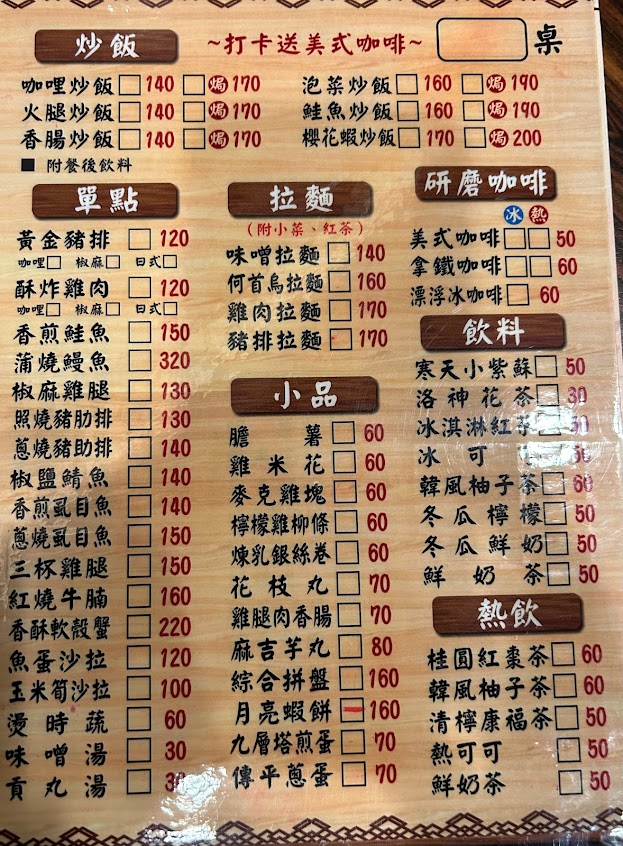 ~打卡送美式咖啡~ 桌
炒飯
咖哩炒飯 140 焗 170
火腿炒飯 140 焗 170
香腸炒飯 140 焗 170
泡菜炒飯 160 焗 190
鮭魚炒飯 160 焗 190
櫻花蝦炒飯 170 焗 200
■ 附餐後飲料
單點
黃金豬排 120
咖哩 椒麻 日式
酥炸雞肉 120
咖哩 椒麻 日式
香煎鮭魚 150
蒲燒鰻魚 320
椒麻雞腿 130
照燒豬肋排 130
蔥燒豬助排 140
椒鹽鯖魚 140
香煎虱目魚 140
蔥燒虱目魚 150
三杯雞腿 150
紅燒牛腩 160
香酥軟殼蟹 220
魚蛋沙拉 120
玉米筍沙拉 100
燙時蔬 60
味噌湯 30
貢丸湯
拉麵
(附小菜、紅茶)
味噌拉麵 140
何首烏拉麵 160
雞肉拉麵 170
豬排拉麵 170
小品
膽薯 60
雞米花 60
麥克雞塊 60
檸檬雞柳條 60
煉乳銀絲卷 60
花枝丸 70
雞腿肉香腸 70
麻吉芋丸 80
綜合拼盤 160
月亮蝦餅 160
九層塔煎蛋 70
傳平蔥蛋 70
研磨咖啡
冰 熱
美式咖啡 50
拿鐵咖啡 60
漂浮冰咖啡 60
飲料
寒天小紫蘇 50
洛神花茶 30
冰淇淋紅茶
冰可可
韓風柚子茶 60
冬瓜檸檬 50
冬瓜鮮奶 50
鮮奶茶 50
熱飲
桂圓紅棗茶 60
韓風柚子茶 60
清檸康福茶 50
熱可可 50
鮮奶茶 50